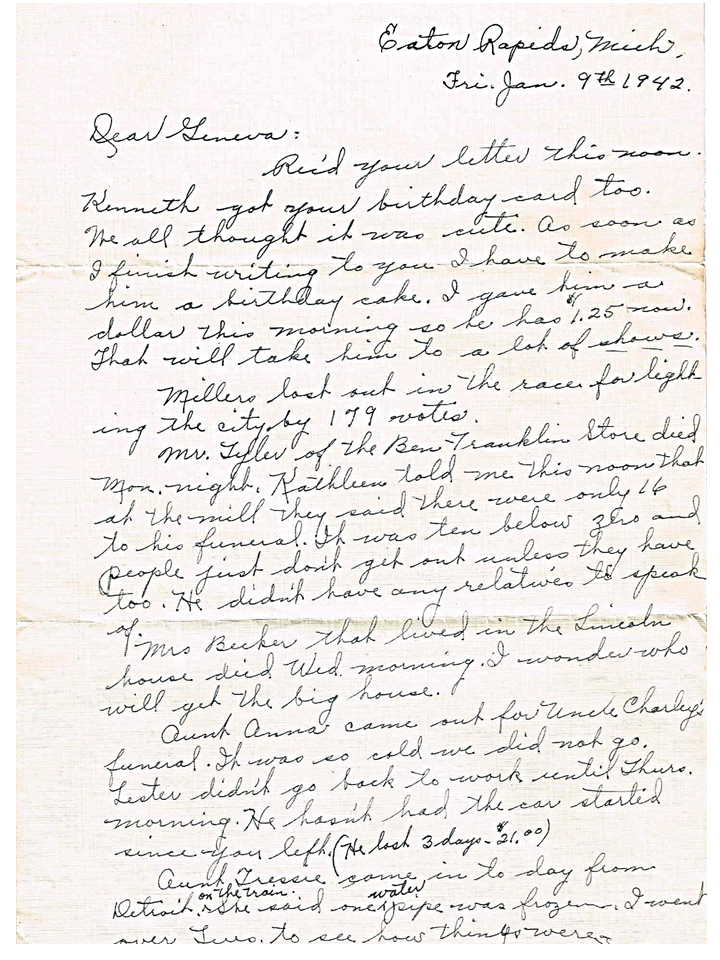 Eaton Rapids, Mich.
Fri. Jan. 9th 1942.
Dear Geneva:
Rec'd your letter this noon.
Kenneth got your birthday card too.
We all thought it was cute. As soon as
I finish writing to you I have to make
him a birthday cake. I gave him a
dollar this morning so he has $1.25 now.
That will take him to a lot of shows.
Millers lost out in the race for light-
ing the city by 179 votes.
Mr. Tyler of the Ben Franklin Store died
Mon. night. Kathleen told me this noon that
at the mill they said there were only 16
to his funeral. It was ten below zero and
people just don't get out unless they have
too. He didn't have any relatives to speak
of.
Mrs Becker that lived in the Lincoln
house died Wed. morning. I wonder who
will get the big house.
Aunt Anna came out for Uncle Charley's
funeral. It was so cold we did not go.
Lester didn't go back to work until Thurs.
morning. He hasn't had the car started
since you left. (He lost 3 days - $21.00)
Aunt Tressie came in to day from
Detroit on the train. She said one water pipe was frozen. I went
over Tues. to see how things were-